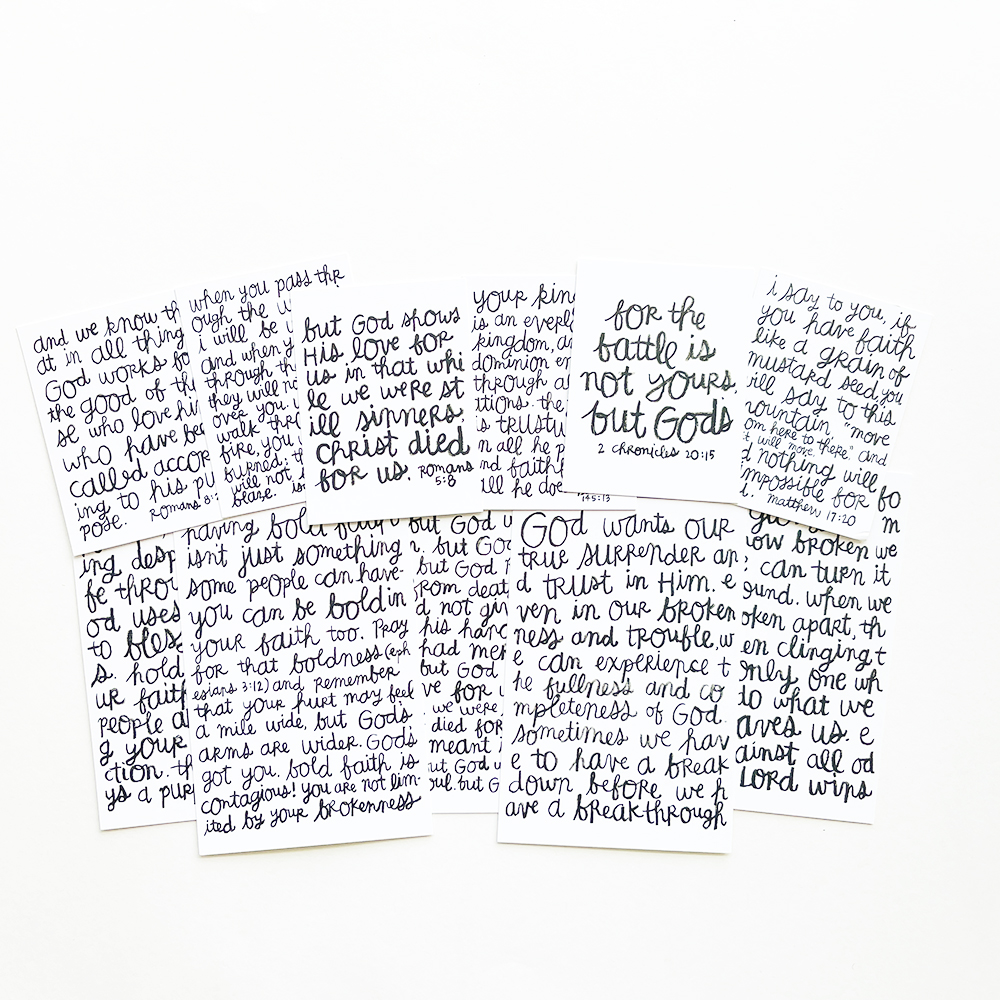 and we know th
at in all thing
God works fo
the good of th
se who love hi
who have bee
called accor
ing to his pu
pose. Romans 8:
when you pass thr
ough the w
i will be
and when y
through th
they will no
over you.
walk thr
fire, you
burned;
will not
blaze. is
but God shows
His love for
us in that whi
le we were st
ill sinners
christ died
for us. romans
5:8
your kin
is an everl
kingdom, a
dominion en
through a
tions. the
is trustw
in all he p
nd faithf
ll he doe
145:13
for the
battle is
not yours,
but Gods
2 chronicles 20:15
i say to you, if
you have faith
like a grain of
mustard seed, you
ill say to this
mountain, "move
om here to there," and
t will move, and
d nothing will
impossible for
. matthew 17:20
ing desp
be throu
od uses
to bles
s. hold
ur faith
people a
g your
ction. th
ys a pur
having bold faith
isn't just something
some people can have-
you can be bold in
your faith too. Pray
for that boldness (eph
esians 3:12) and remember
that your hurt may feel
a mile wide, but Gods
arms are wider. Gods
got you. bold faith is
contagious! you are not lim-
ited by your brokenness
but God w
. but God
. but God
from deat
d not giv
his hand
had mer
but God
ve for u
we were
died for
meant
but God
oul. but G
God wants our
true surrender an
d trust in Him. e
ven in our broken
ness and trouble, w
e can experience t
he fullness and co
mpleteness of God.
sometimes we hav
e to have a break
down before we h
ave a breakthrough
fo
m
how broken we
can turn it
ound. when we
oken apart, th
en clinging t
only one wh
to what we
aves us. e
ainst all od
LORD wins